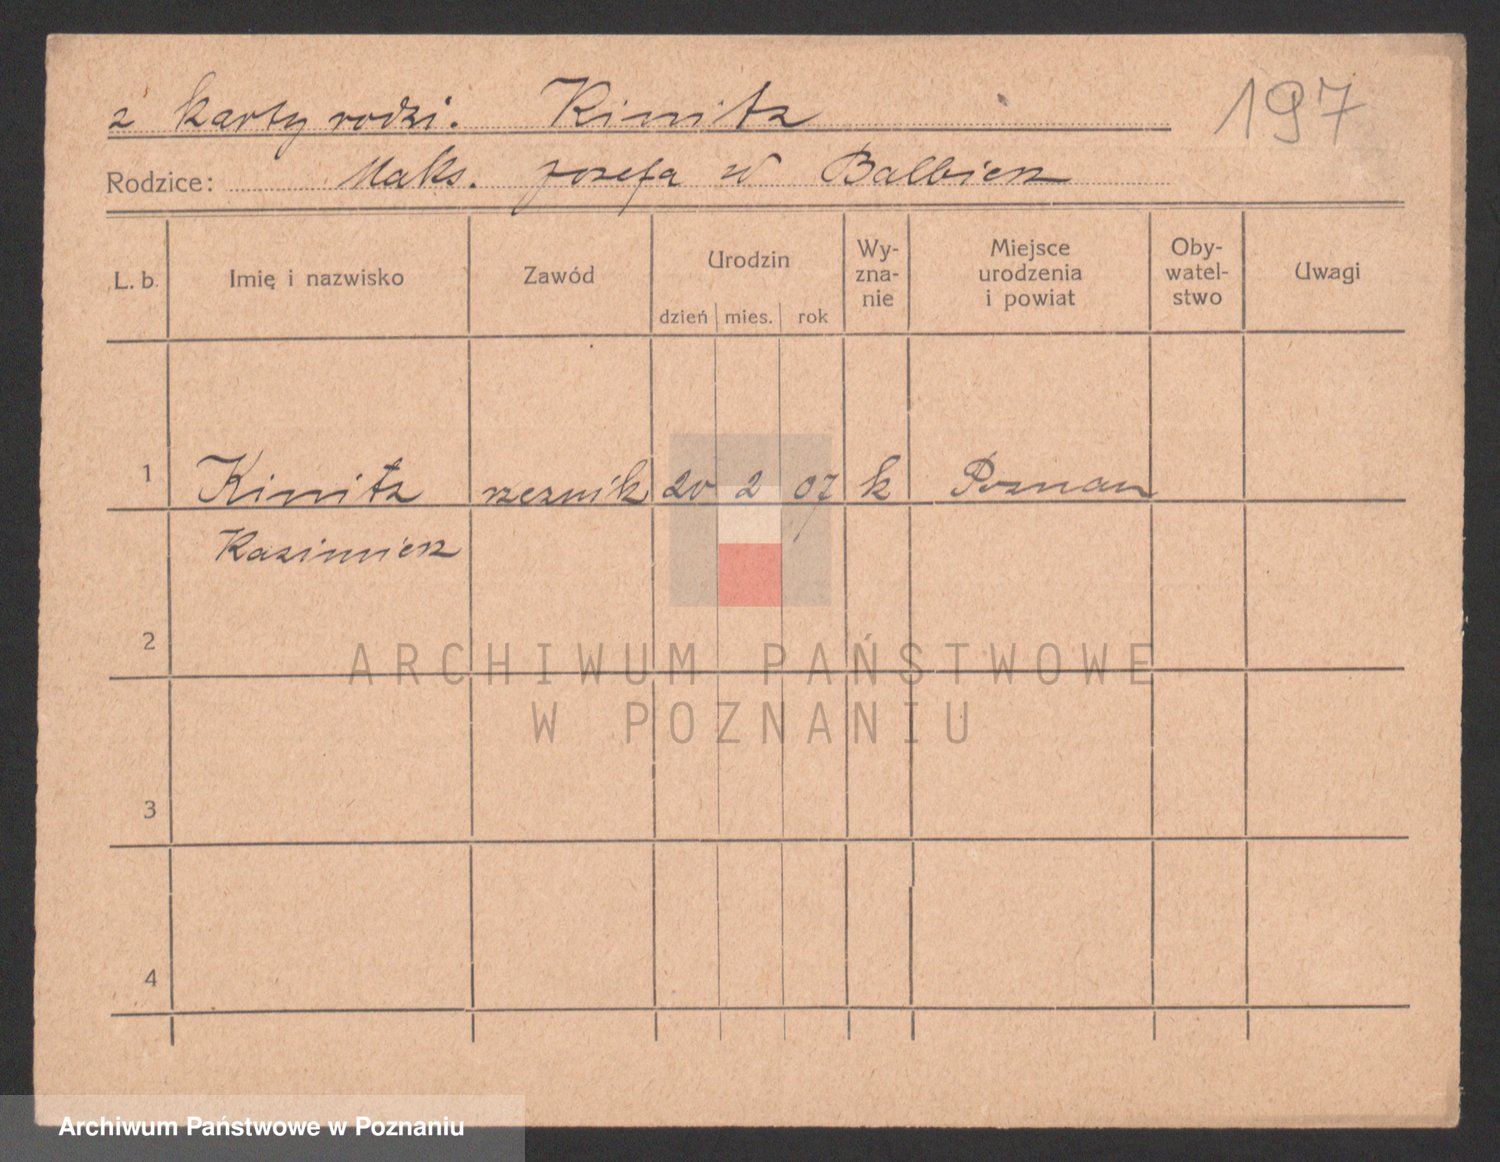 z karty rodzi. Kinitz
197
Rodzice: Maks. Jozefa w Balbierz
L. b. Imię i nazwisko Zawód Urodzin dzień mies. rok Wy-zna-nie Miejsce urodzenia i powiat Oby-watel-stwo Uwagi
1 Kinitz rzeznik 20 2 07 k Poznan
Kazimierz
2
ARCHIWUM PAŃSTWOWE
W POZNANIU
3
4
Archiwum Państwowe w Poznaniu